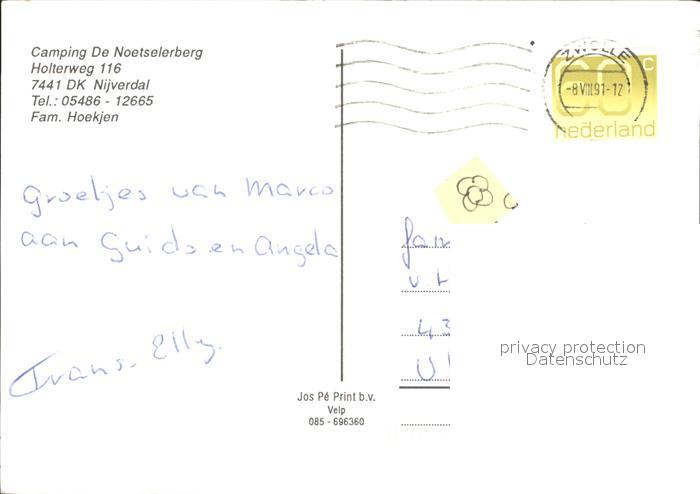 Camping De Noetselerberg
Holterweg 116
7441 DK Nijverdal
Tel.: 05486 - 12665
Fam. Hoekjen
ZWOLLE
-8 VIII.91-12
60 C
nederland
Groetjes van Marco
aan Guido en Angela
Frans. Elly.
Fam
v
43
U
privacy protection
Datenschutz
Jos Pé Print b.v.
Velp
085 - 696360